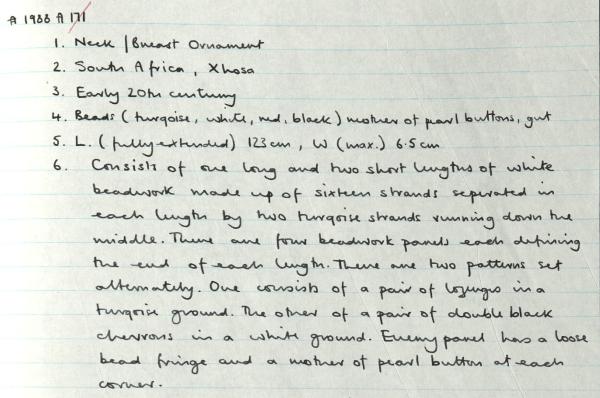 A 1988 A 171
1. Neck / Breast Ornament
2. South Africa, Xhosa
3. Early 20th century
4. Beads (turqoise, white, red, black) mother of pearl buttons, gut
5. L. (fully extended) 123 cm, W (max.) 6.5 cm
6. Consists of one long and two short lengths of white
beadwork made up of sixteen strands seperated in
each length by two turqoise strands running down the
middle. There are four beadwork panels each defining
the end of each length. There are two patterns set
alternately. One consists of a pair of lozenges in a
turqoise ground. The other of a pair of double black
chevrons in a white ground. Every panel has a loose
bead fringe and a mother of pearl button at each
corner.